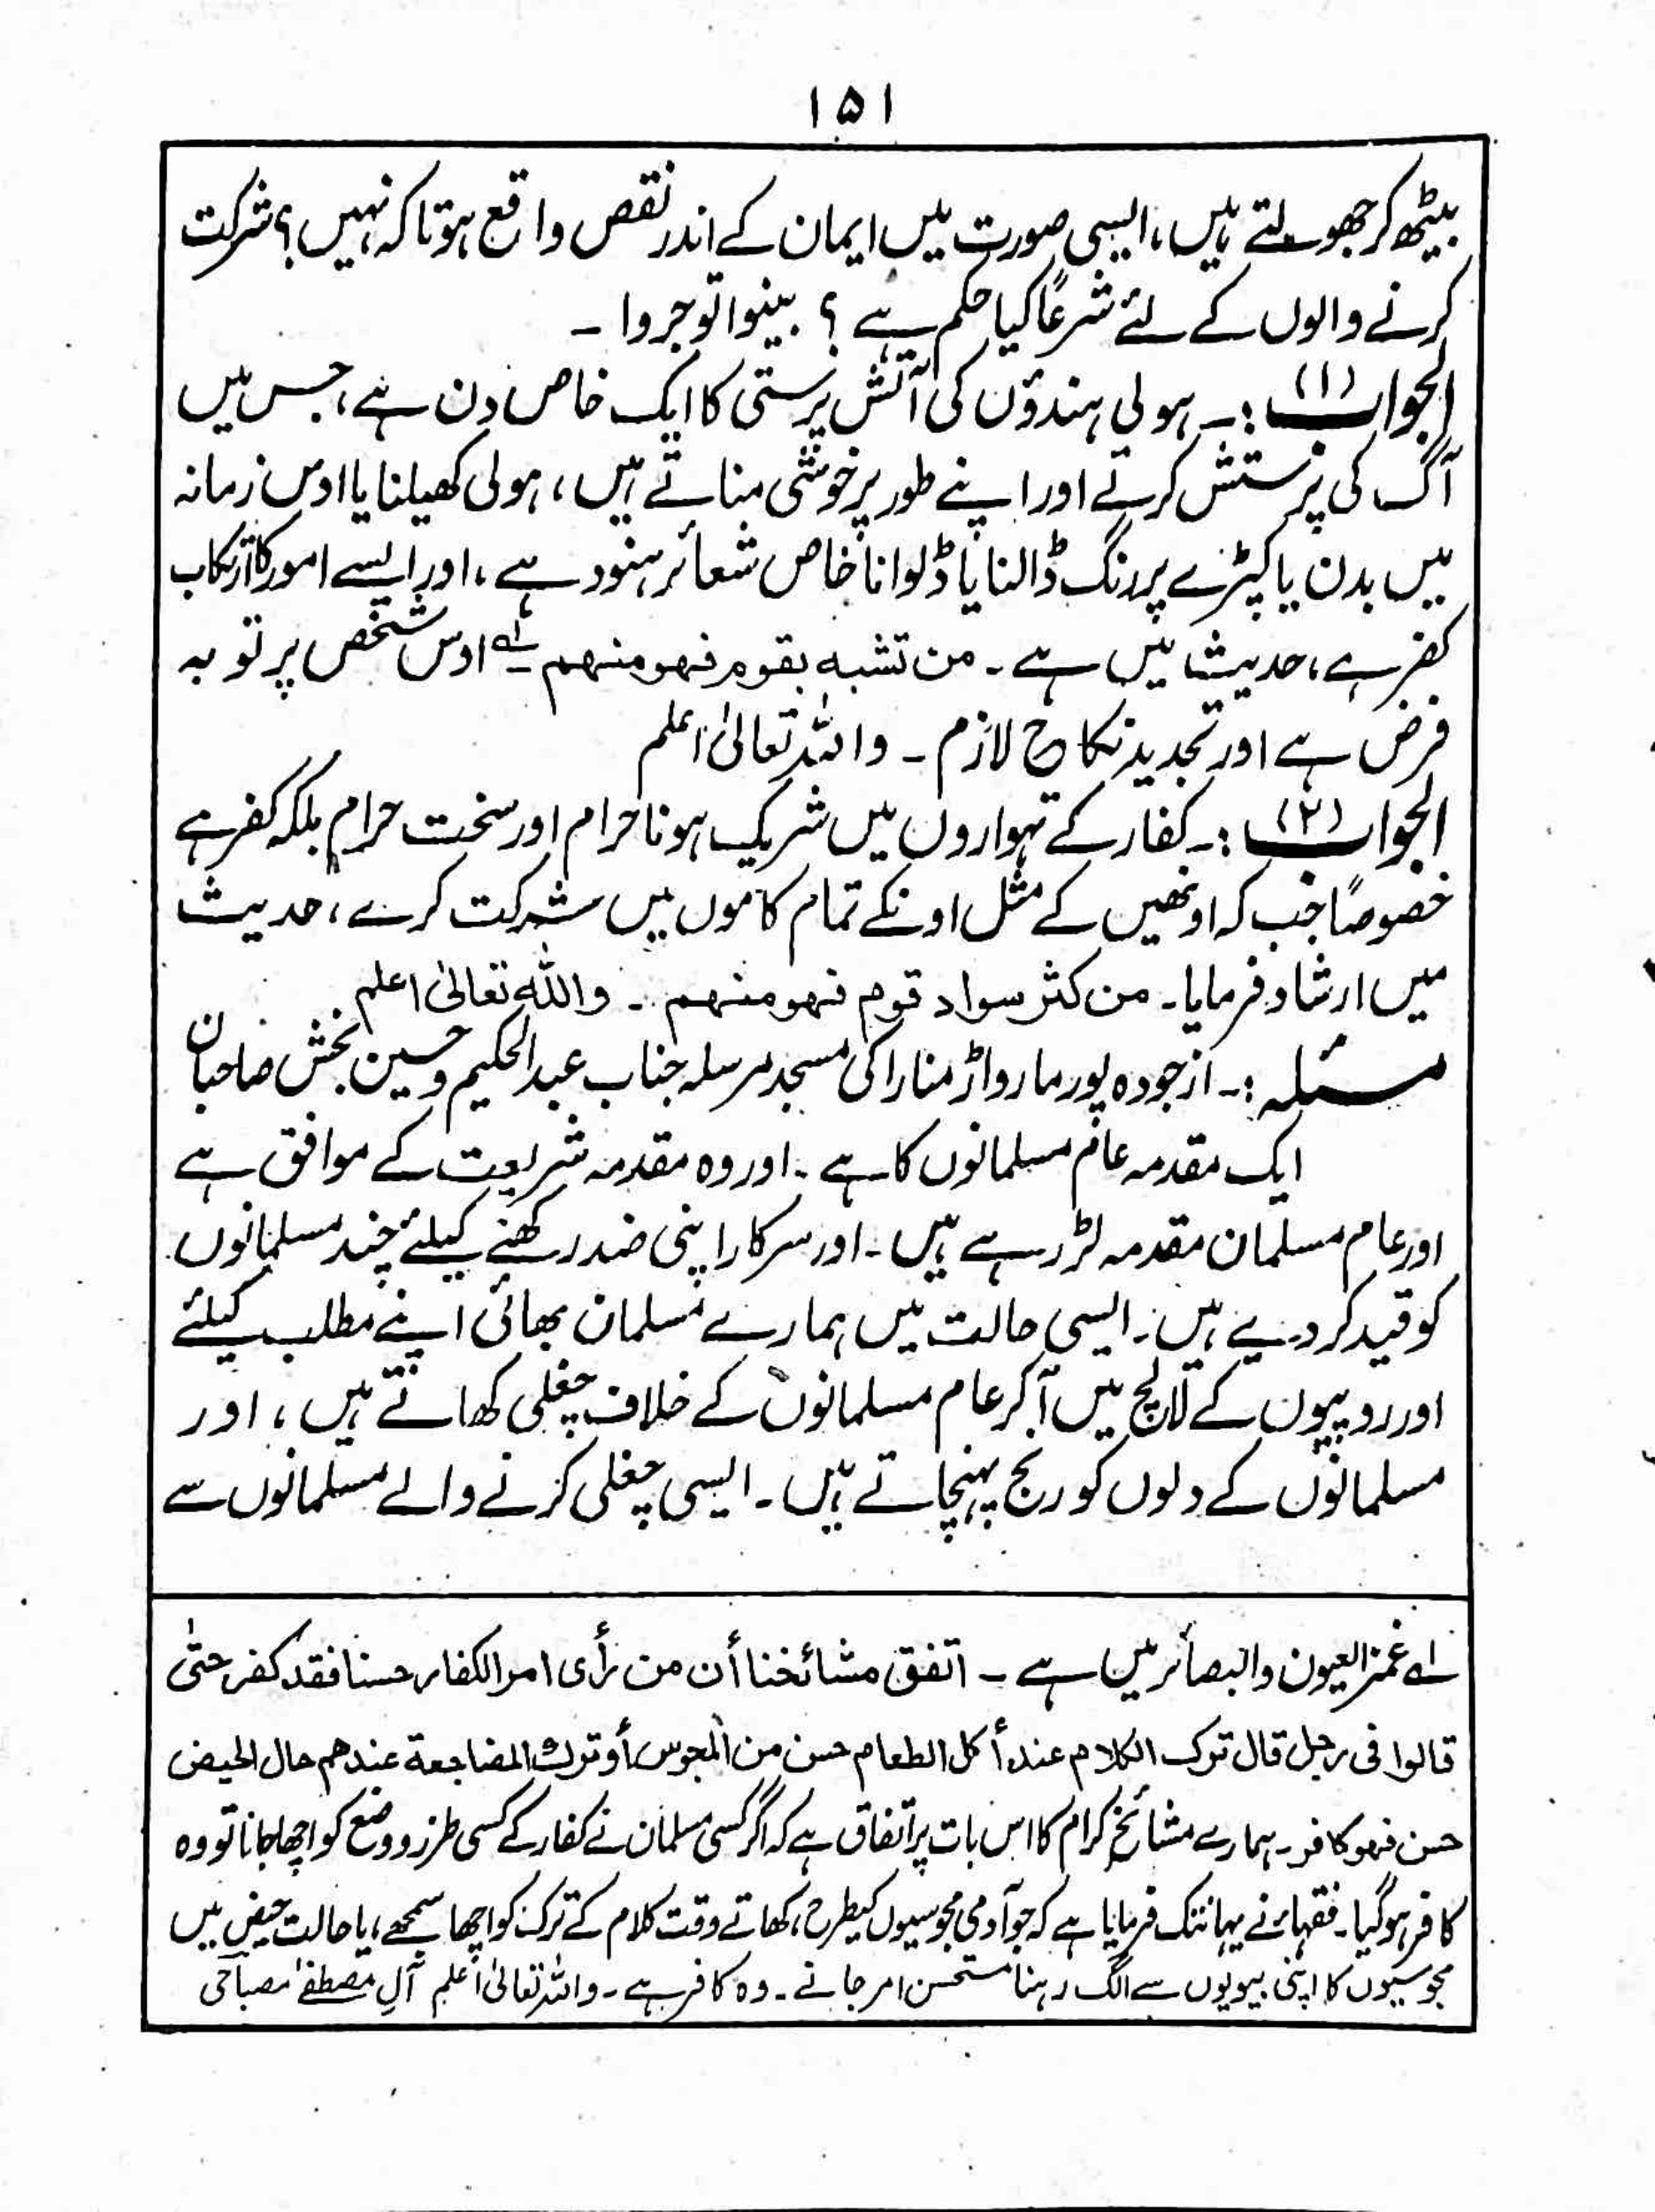 ۱۵۱
بیٹھ کر جھولتے ہیں، ایسی صورت میں ایمان کے اندر نقص واقع ہوتا کہ نہیں؟ شرکت
کرنے والوں کے لئے شرعًا کیا حکم ہے ؟ بینوا توجروا ۔
الجواب (۱) :۔ ہولی ہندؤں کی آتش پرستی کا ایک خاص دن ہے، جس میں
آگ کی پرستش کرتے اور اپنے طور پر خوشی مناتے ہیں، ہولی کھیلنا یا اوس زمانہ
میں بدن یا کپڑے پر رنگ ڈالنا یا ڈلوانا خاص شعائر ہنود ہے، اور ایسے امور کا ارتکاب
کفر ہے، حدیث میں ہے ۔ من تشبه بقوم فهو منهم ۱ے اوس شخص پر توبہ
فرض ہے اور تجدید نکاح لازم ۔ واللہ تعالیٰ اعلم
الجواب (۲) :۔ کفار کے تہواروں میں شریک ہونا حرام اور سخت حرام بلکہ کفر ہے
خصوصًا جب کہ اونھیں کے مثل اونکے تمام کاموں میں شرکت کرے، حدیث
میں ارشاد فرمایا۔ من کثر سواد قوم فهو منهم ۔ واللہ تعالیٰ اعلم
مسئلہ :۔ از جودہ پور مارواڑ منارا کی مسجد مرسلہ جناب عبدالحکیم و حسین بخش صاحبان
ایک مقدمہ عام مسلمانوں کا ہے ۔ اور وہ مقدمہ شریعت کے موافق ہے
اور عام مسلمان مقدمہ لڑ رہے ہیں ۔ اور سرکار اپنی ضد رکھنے کیلئے چند مسلمانوں
کو قید کر دیے ہیں۔ ایسی حالت میں ہمارے مسلمان بھائی اپنے مطلب کیلئے
اور روپیوں کے لالچ میں آکر عام مسلمانوں کے خلاف چغلی کھاتے ہیں، اور
مسلمانوں کے دلوں کو رنج پہنچاتے ہیں ۔ ایسی چغلی کرنے والے مسلمانوں سے
۱ے غمز العیون والبصائر میں ہے ۔ اتفق مشائخنا أن من رأى امر الكفار حسنا فقد كفر حتىٰ
قالوا فى رجل قال ترك الكلام عند أكل الطعام حسن من المجوس أو ترك المضاجعة عندهم حال الحيض
حسن فهو كافر ۔ ہمارے مشائخ کرام کا اس بات پر اتفاق ہے کہ اگر کسی مسلمان نے کفار کے کسی طرز و وضع کو اچھا جانا تو وہ
کافر ہوگیا۔ فقہاء نے یہانتک فرمایا ہے کہ جو آدمی مجوسیوں کیطرح، کھاتے وقت کلام کے ترک کو اچھا سمجھے، یا حالت حیض میں
مجوسیوں کا اپنی بیویوں سے الگ رہنا مستحسن امر جانے ۔ وہ کافر ہے ۔ واللہ تعالیٰ اعلم آلِ مصطفےٰ مصباحی